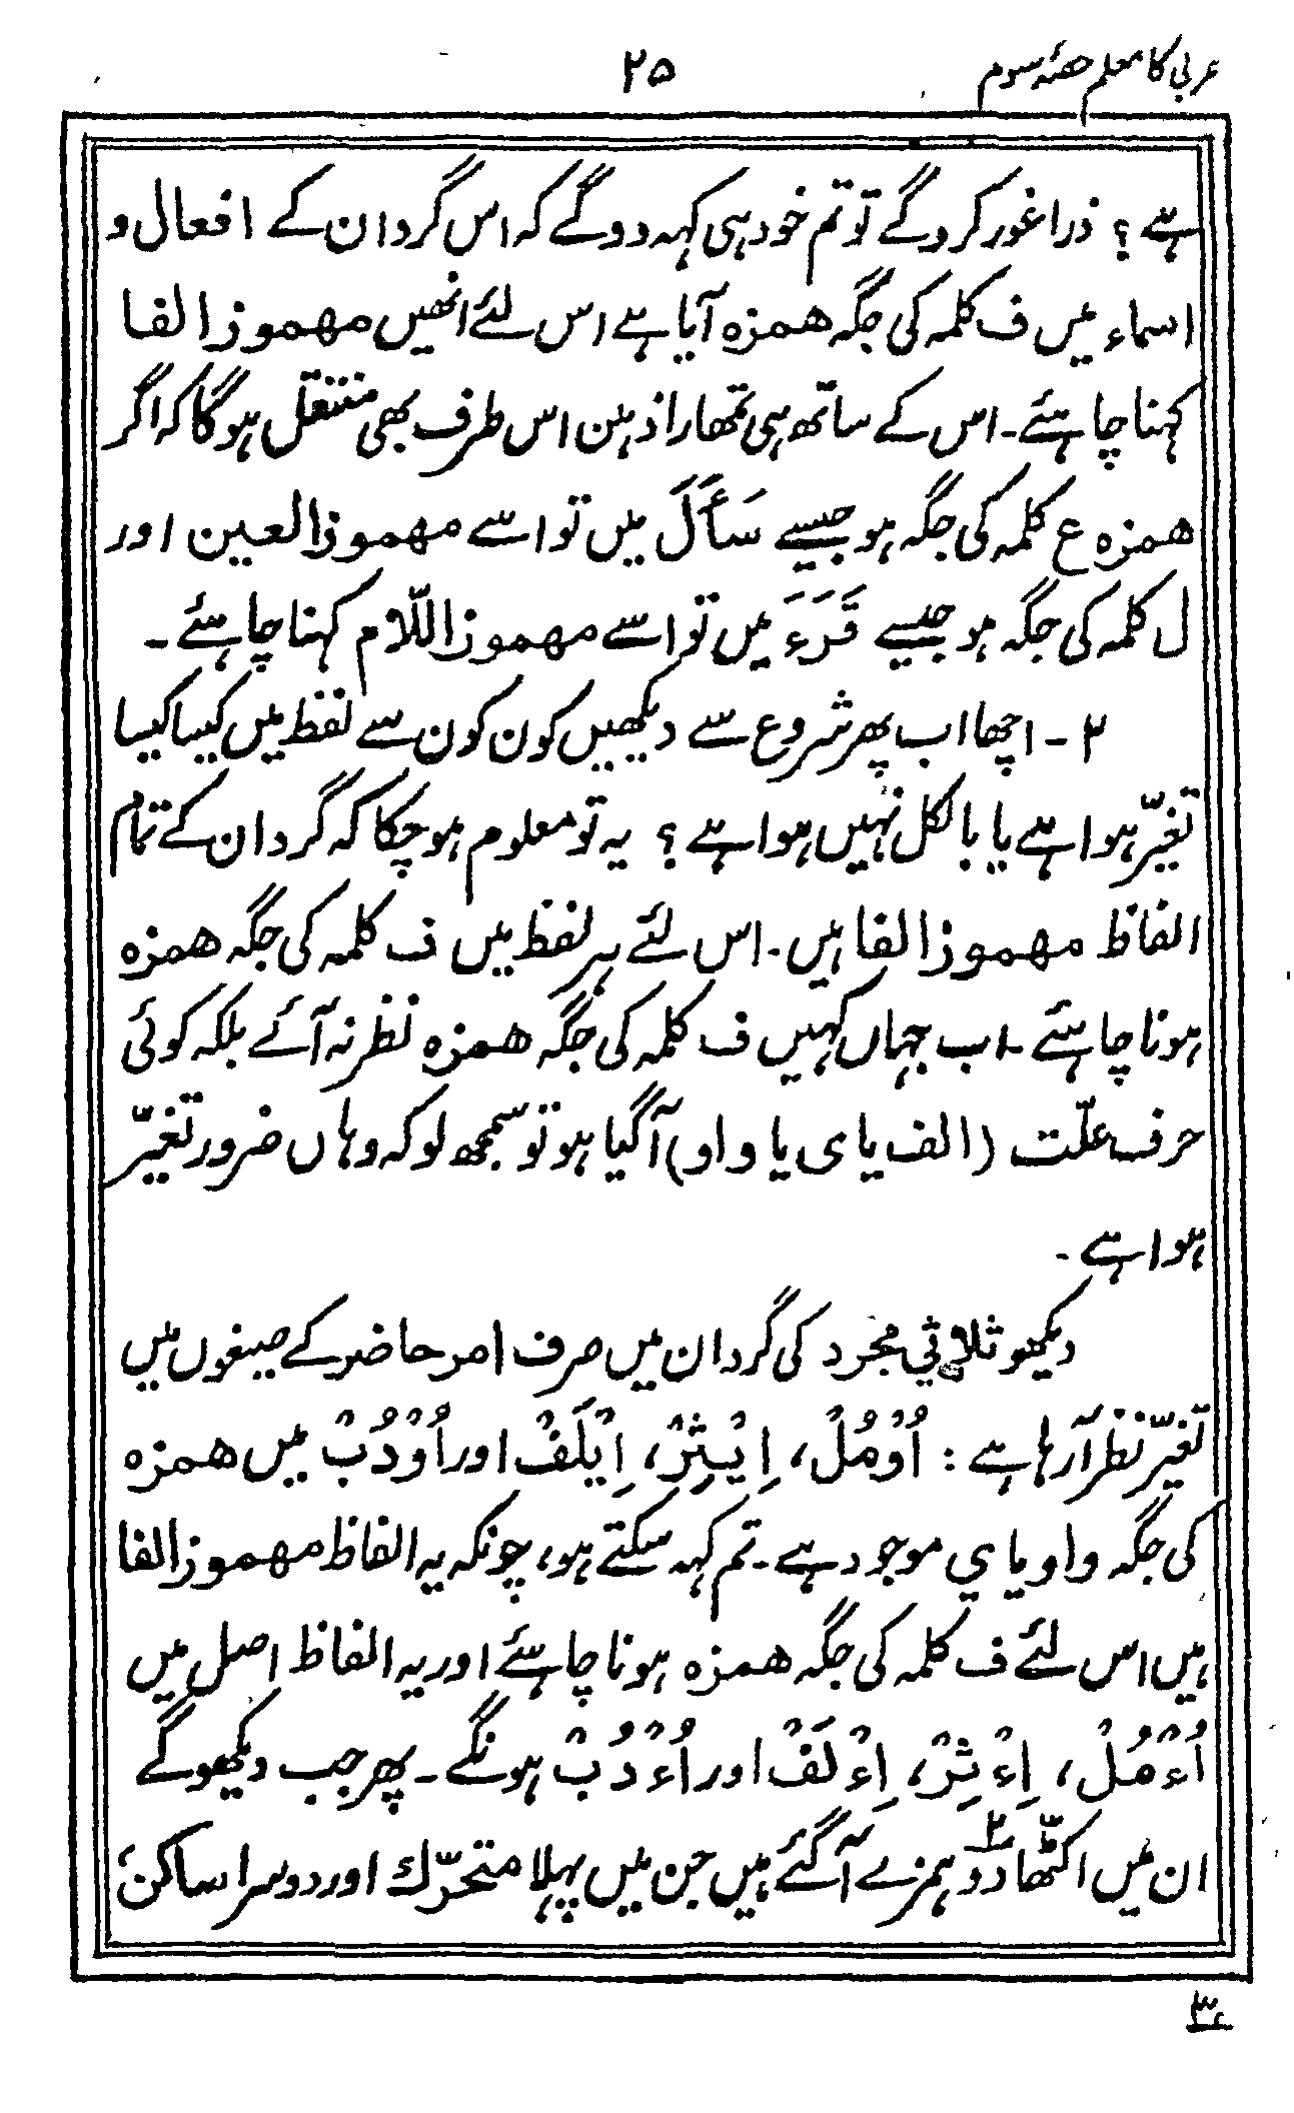 عربی کا معلم حصّہ سوم
۲۵
ہے ؟ ذرا غور کرو گے تو تم خود ہی کہہ دو گے کہ اس گردان کے افعال و
اسماء میں ف کلمہ کی جگہ همزہ آیا ہے اس لئے انھیں مهموز الفا
کہنا چاہئے۔ اس کے ساتھ ہی تمھارا ذہن اس طرف بھی منتقل ہوگا کہ اگر
همزہ ع کلمہ کی جگہ ہو جیسے سَأَلَ میں تو اسے مهموز العین اور
ل کلمہ کی جگہ ہو جیسے قَرَءَ میں تو اسے مهموز اللّام کہنا چاہئے ۔
۲ - اچھا اب پھر شروع سے دیکھیں کون کون سے لفظ میں کیسا کیسا
تغیّر ہوا ہے یا بالکل نہیں ہوا ہے ؟ یہ تو معلوم ہو چکا کہ گردان کے تمام
الفاظ مهموز الفا ہیں۔ اس لئے ہر لفظ میں ف کلمہ کی جگہ همزہ
ہونا چاہئے ۔ اب جہاں کہیں ف کلمہ کی جگہ همزہ نظر نہ آئے بلکہ کوئی
حرف علّت (الف یا ی یا واو) آگیا ہو تو سمجھ لو کہ وہاں ضرور تغیّر
ہوا ہے ۔
دیکھو ثلاثی مجرد کی گردان میں صرف امر حاضر کے صیغوں میں
تغیّر نظر آرہا ہے : اُوْمُلْ، اِیْثِرْ، اِیْلَفْ اور اُوْدُبْ میں همزہ
کی جگہ واو یا ي موجود ہے ۔ تم کہہ سکتے ہو، چونکہ یہ الفاظ مهموز الفا
ہیں اس لئے ف کلمہ کی جگہ همزہ ہونا چاہئے اور یہ الفاظ اصل میں
اُءْمُلْ، اِءْثِرْ، اِءْلَفْ اور اُءْدُبْ ہونگے ۔ پھر جب دیکھو گے
ان میں اکٹّھا دو۲ ہمزے آگئے ہیں جن میں پہلا متحرّك اور دوسرا ساکن،
۳